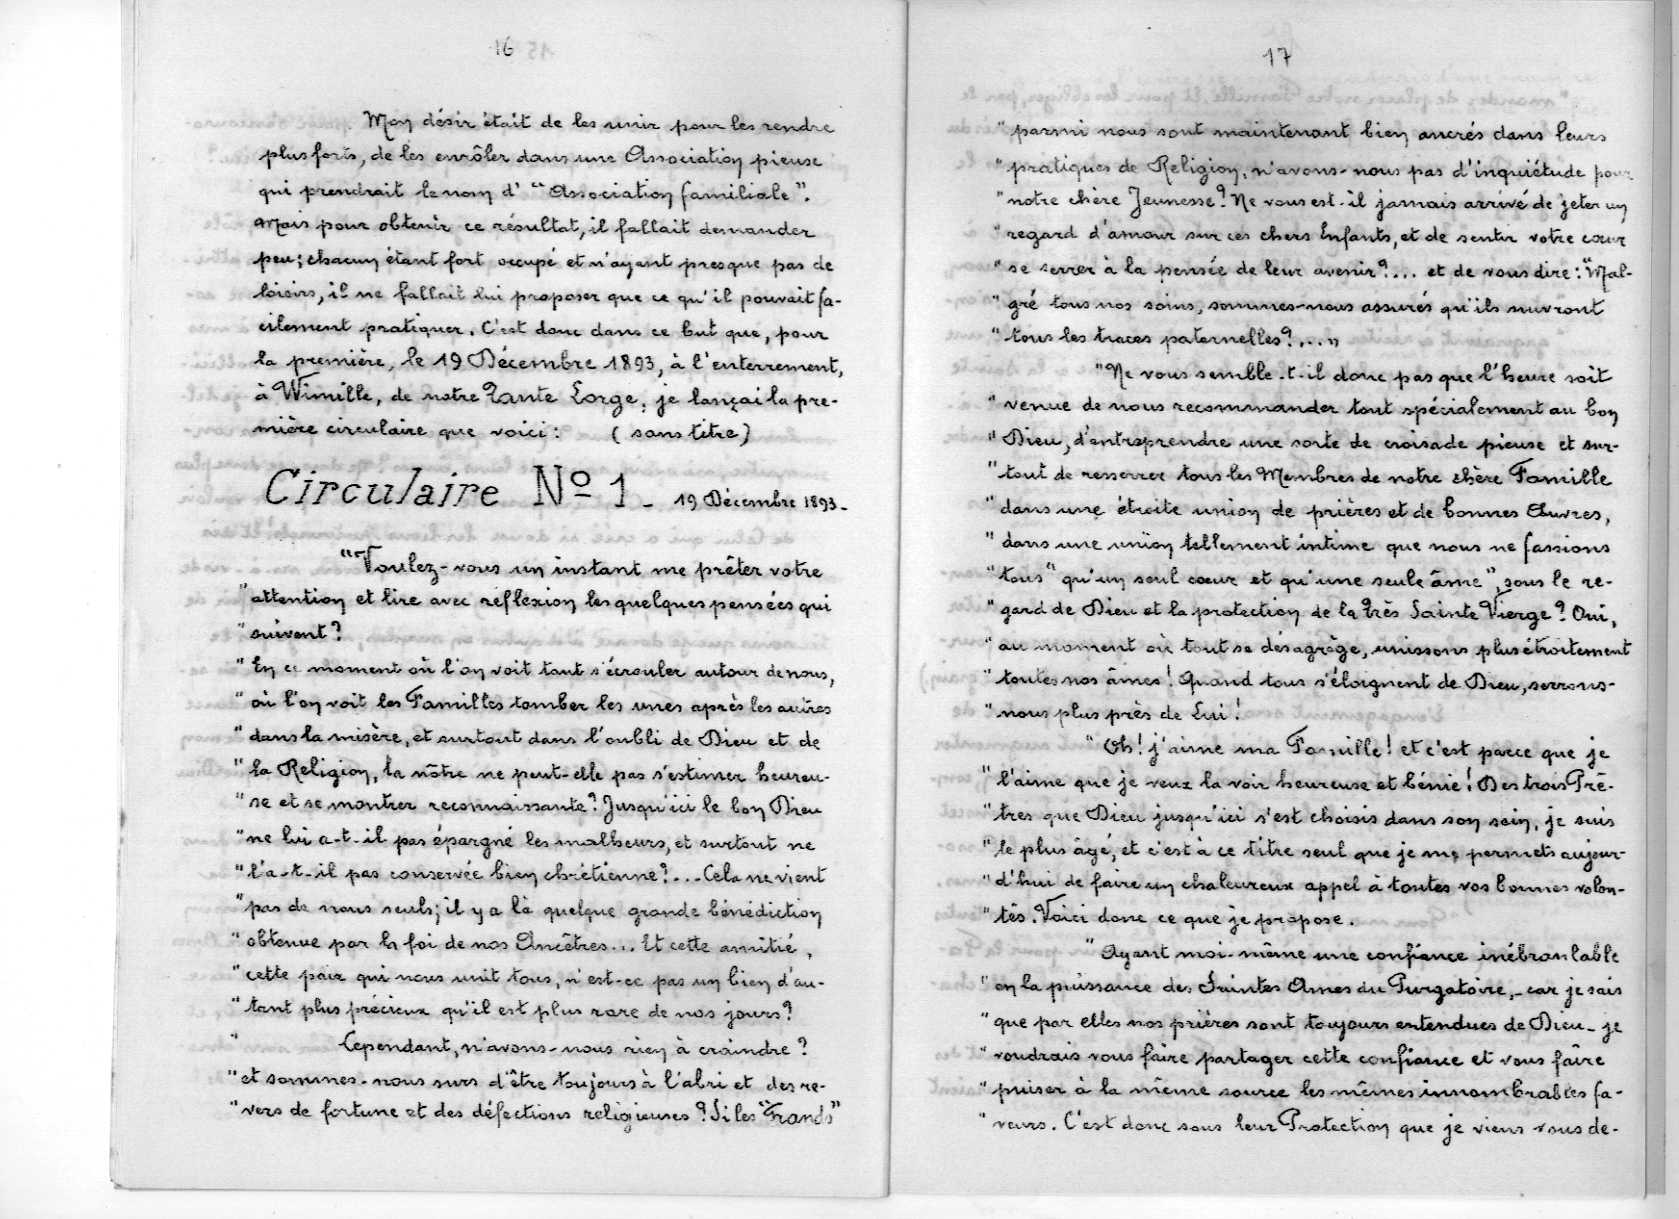 16
Mon désir était de les unir pour les rendre
plus forts, de les enrôler dans une Association pieuse
qui prendrait le nom d' "Association familiale".
Mais pour obtenir ce résultat, il fallait demander
peu; chacun étant fort occupé et n'ayant presque pas de
loisirs, il ne fallait lui proposer que ce qu'il pouvait fa-
cilement pratiquer. C'est donc dans ce but que, pour
la première, le 19 Décembre 1893, à l'enterrement,
à Wimille, de notre Tante Lorge, je lançai la pre-
mière circulaire que voici : (sans titre)
Circulaire Nº 1 - 19 Décembre 1893 -
"Voulez-vous un instant me prêter votre
"attention et lire avec réflexion les quelques pensées qui
"suivent?
"En ce moment où l'on voit tant s'écrouler autour de nous,
"où l'on voit les Familles tomber les unes après les autres
"dans la misère, et surtout dans l'oubli de Dieu et de
"la Religion, la nôtre ne peut-elle pas s'estimer heureu-
"se et se montrer reconnaissante? Jusqu'ici le bon Dieu
"ne lui a-t-il pas épargné les malheurs, et surtout ne
"l'a-t-il pas conservée bien chrétienne?... Cela ne vient
"pas de nous seuls; il y a là quelque grande bénédiction
"obtenue par la foi de nos Ancêtres... Et cette amitié,
"cette paix qui nous unit tous, n'est-ce pas un bien d'au-
"tant plus précieux qu'il est plus rare de nos jours?
" Cependant, n'avons-nous rien à craindre?
"et sommes-nous surs d'être toujours à l'abri et des re-
"vers de fortune et des défections religieuses? Si les "Grands"
17
"parmi nous sont maintenant bien ancrés dans leurs
"pratiques de Religion, n'avons-nous pas d'inquiétude pour
"notre chère Jeunesse? Ne vous est-il jamais arrivé de jeter un
"regard d'amour sur ces chers Enfants, et de sentir votre cœur
"se serrer à la pensée de leur avenir?... et de vous dire: "Mal-
"gré tous nos soins, sommes-nous assurés qu'ils suivront
"tous les traces paternelles?..."
"Ne vous semble-t-il donc pas que l'heure soit
"venue de nous recommander tout spécialement au bon
"Dieu, d'entreprendre une sorte de croisade pieuse et sur-
"tout de resserrer tous les Membres de notre chère Famille
"dans une étroite union de prières et de bonnes Œuvres,
"dans une union tellement intime que nous ne fassions
"tous "qu'un seul cœur et qu'une seule âme", sous le re-
"gard de Dieu et la protection de la très Sainte Vierge? Oui,
"au moment où tout se désagrège, unissons plus étroitement
"toutes nos âmes! Quand tous s'éloignent de Dieu, serrons-
"nous plus près de Lui!
"Oh! j'aime ma Famille! et c'est parce que je
"l'aime que je veux la voir heureuse et bénie! Des trois Prê-
"tres que Dieu jusqu'ici s'est choisis dans son sein, je suis
"le plus âgé, et c'est à ce titre seul que je me permets aujour-
"d'hui de faire un chaleureux appel à toutes vos bonnes volon-
"tés. Voici donc ce que je propose.
"Ayant moi-même une confiance inébranlable
"en la puissance des Saintes Ames du Purgatoire, - car je sais
"que par elles nos prières sont toujours entendues de Dieu - je
"voudrais vous faire partager cette confiance et vous faire
"puiser à la même source les mêmes innombrables fa-
"veurs. C'est donc sous leur Protection que je viens vous de-